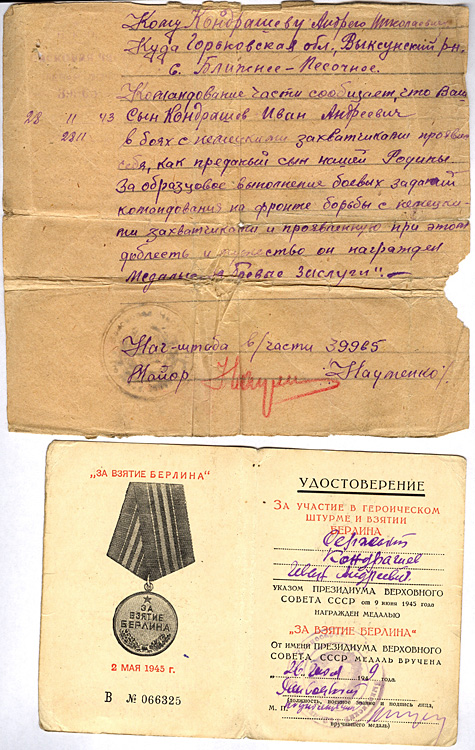 Кому Кондрашеву Андрею Николаевич
Куда Горьковская обл, Выксунский р-н
с. Ближнее-Песочное.
Командование части сообщает, что Ваш
28 11 43 сын Кондрашев Иван Андреевич
2311 в боях с немецкими захватчиками проявил
себя, как преданый сын нашей Родины
За образцовое выполнение боевых заданий
командования на фронте борьбы с немецки-
ми захватчиками и проявленную при этом
доблесть и мужество он награжден
Медалью „За боевые заслуги".
Нач-штаба в/части 39985
Майор /Науменко/
„ЗА ВЗЯТИЕ БЕРЛИНА"
ЗА
ВЗЯТИЕ
БЕРЛИНА
2 МАЯ 1945 г.
В № 066325
УДОСТОВЕРЕНИЕ
ЗА УЧАСТИЕ В ГЕРОИЧЕСКОМ
ШТУРМЕ И ВЗЯТИИ
БЕРЛИНА
Сержант
Кондрашев
Иван Андреевич
УКАЗОМ ПРЕЗИДИУМА ВЕРХОВНОГО
СОВЕТА СССР от 9 июня 1945 года
НАГРАЖДЕН МЕДАЛЬЮ
„ЗА ВЗЯТИЕ БЕРЛИНА"
ОТ ИМЕНИ ПРЕЗИДИУМА ВЕРХОВНОГО
СОВЕТА СССР МЕДАЛЬ ВРУЧЕНА
„26" 194 г.
(должность, воинское звание и подпись лица,
М. П.
вручившего медаль)